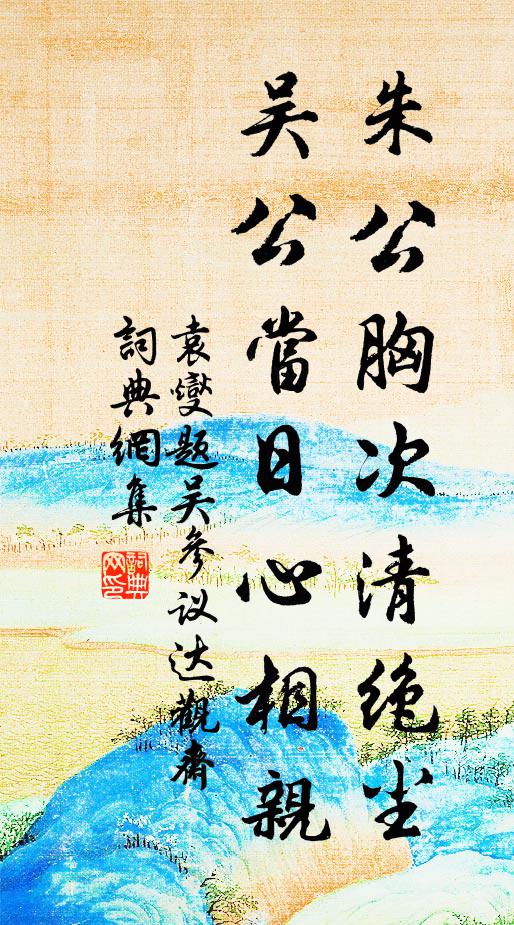 朱公胸次清绝尘
吴公當日心相親
袁燮题吴参议达觀斋
詞典網集